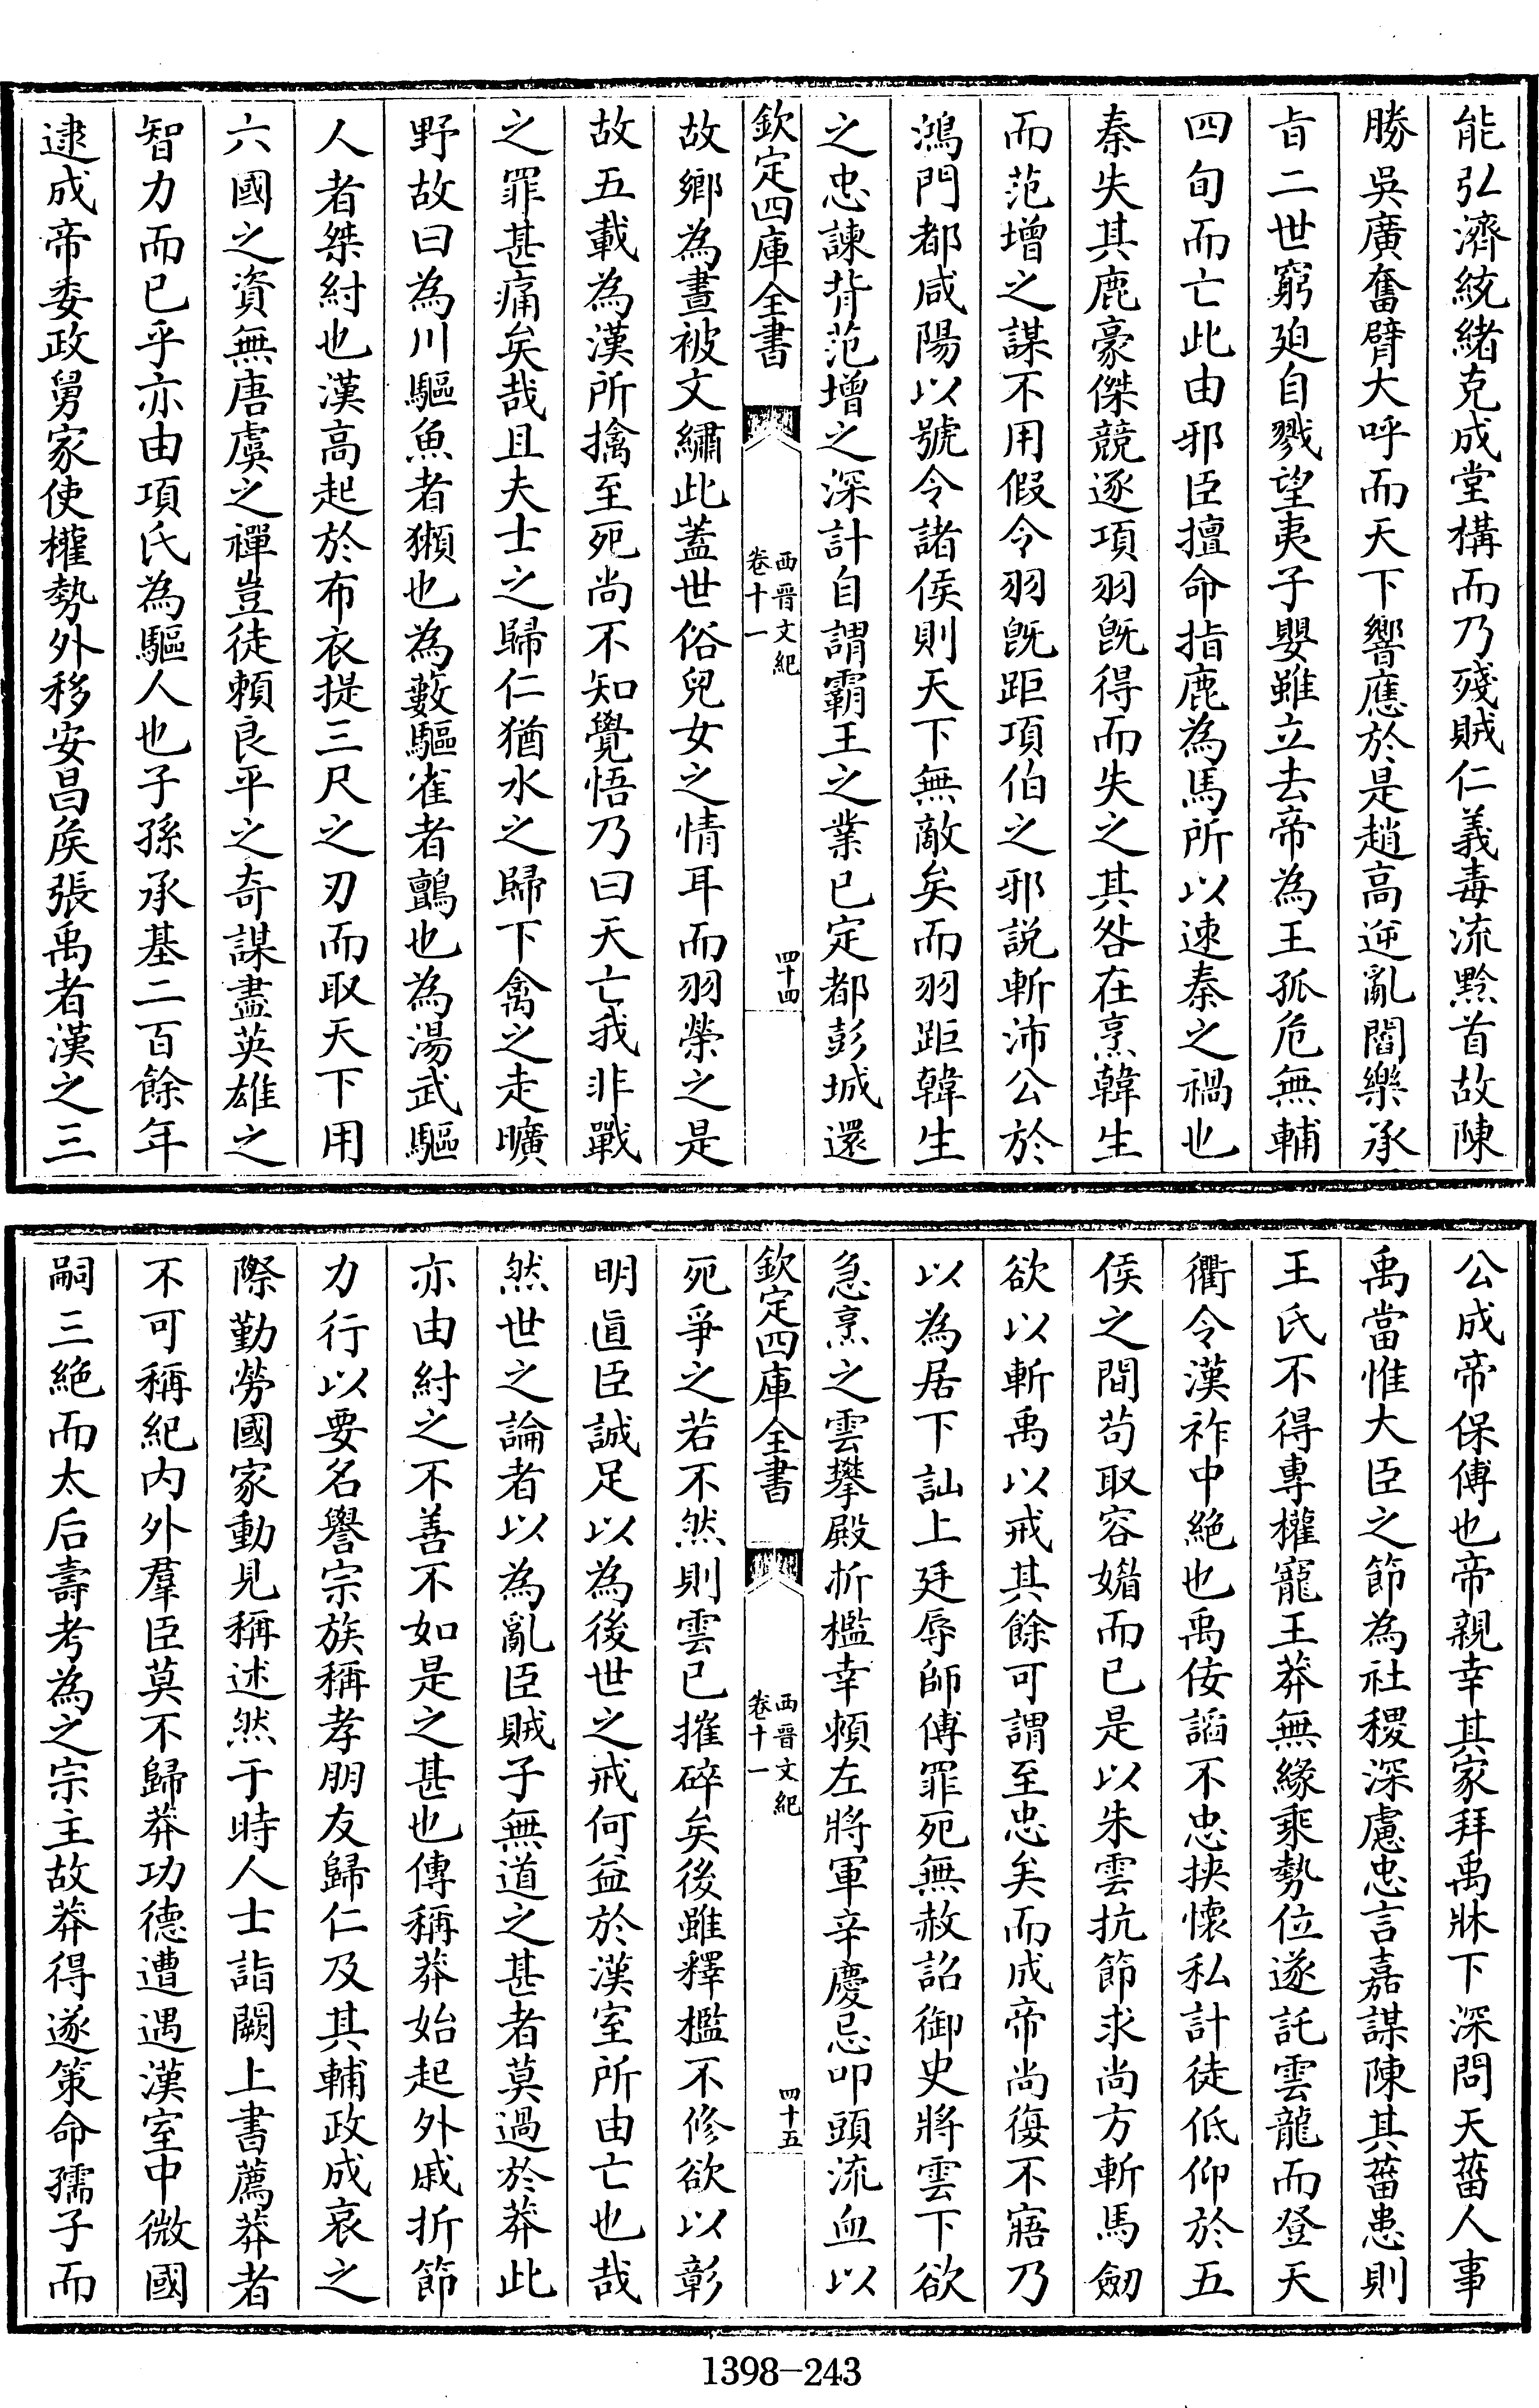 能弘濟統緒克成堂構而乃殘賊仁義毒流黔首故陳
勝吳廣奮臂大呼而天下響應於是趙高逆亂閻樂承
㫖二世窮廹自戮望夷子嬰雖立去帝為王孤危無輔
四旬而亡此由邪臣擅命指鹿為馬所以速秦之禍也
秦失其鹿豪傑競逐項羽既得而失之其咎在烹韓生
而范增之謀不用假令羽既距項伯之邪説斬沛公於
鴻門都咸陽以號令諸侯則天下無敵矣而羽距韓生
之忠諫背范增之深計自謂霸王之業已定都彭城還
欽定四庫全書
西晉文紀
卷十一
四十四
故鄉為晝被文繡此蓋世俗兒女之情耳而羽榮之是
故五載為漢所擒至死尚不知覺悟乃曰天亡我非戰
之罪甚痛矣哉且夫士之歸仁猶水之歸下禽之走曠
野故曰為川驅魚者獺也為藪驅雀者鸇也為湯武驅
人者桀紂也漢高起於布衣提三尺之刃而取天下用
六國之資無唐虞之禪豈徒賴良平之奇謀盡英雄之
智力而已乎亦由項氏為驅人也子孫承基二百餘年
逮成帝委政舅家使權勢外移安昌侯張禹者漢之三
公成帝保傅也帝親幸其家拜禹牀下深問天菑人事
禹當惟大臣之節為社稷深慮忠言嘉謀陳其菑患則
王氏不得專權寵王莽無緣乘勢位遂託雲龍而登天
衢令漢祚中絶也禹佞諂不忠挟懷私計徒低仰於五
侯之間苟取容媚而已是以朱雲抗節求尚方斬馬劒
欲以斬禹以戒其餘可謂至忠矣而成帝尚復不寤乃
以為居下訕上廷辱師傅罪死無赦詔御史將雲下欲
急烹之雲攀殿折檻幸賴左將軍辛慶忌叩頭流血以
欽定四庫全書
西晉文紀
卷十一
四十五
死爭之若不然則雲已摧碎矣後雖釋檻不修欲以彰
明直臣誠足以為後世之戒何益於漢室所由亡也哉
然世之論者以為亂臣賊子無道之甚者莫過於莽此
亦由紂之不善不如是之甚也傳稱莽始起外戚折節
力行以要名譽宗族稱孝朋友歸仁及其輔政成哀之
際勤勞國家動見稱述然于時人士詣闕上書薦莽者
不可稱紀内外羣臣莫不歸莽功德遭遇漢室中微國
嗣三絶而太后壽考為之宗主故莽得遂策命孺子而
1398-243